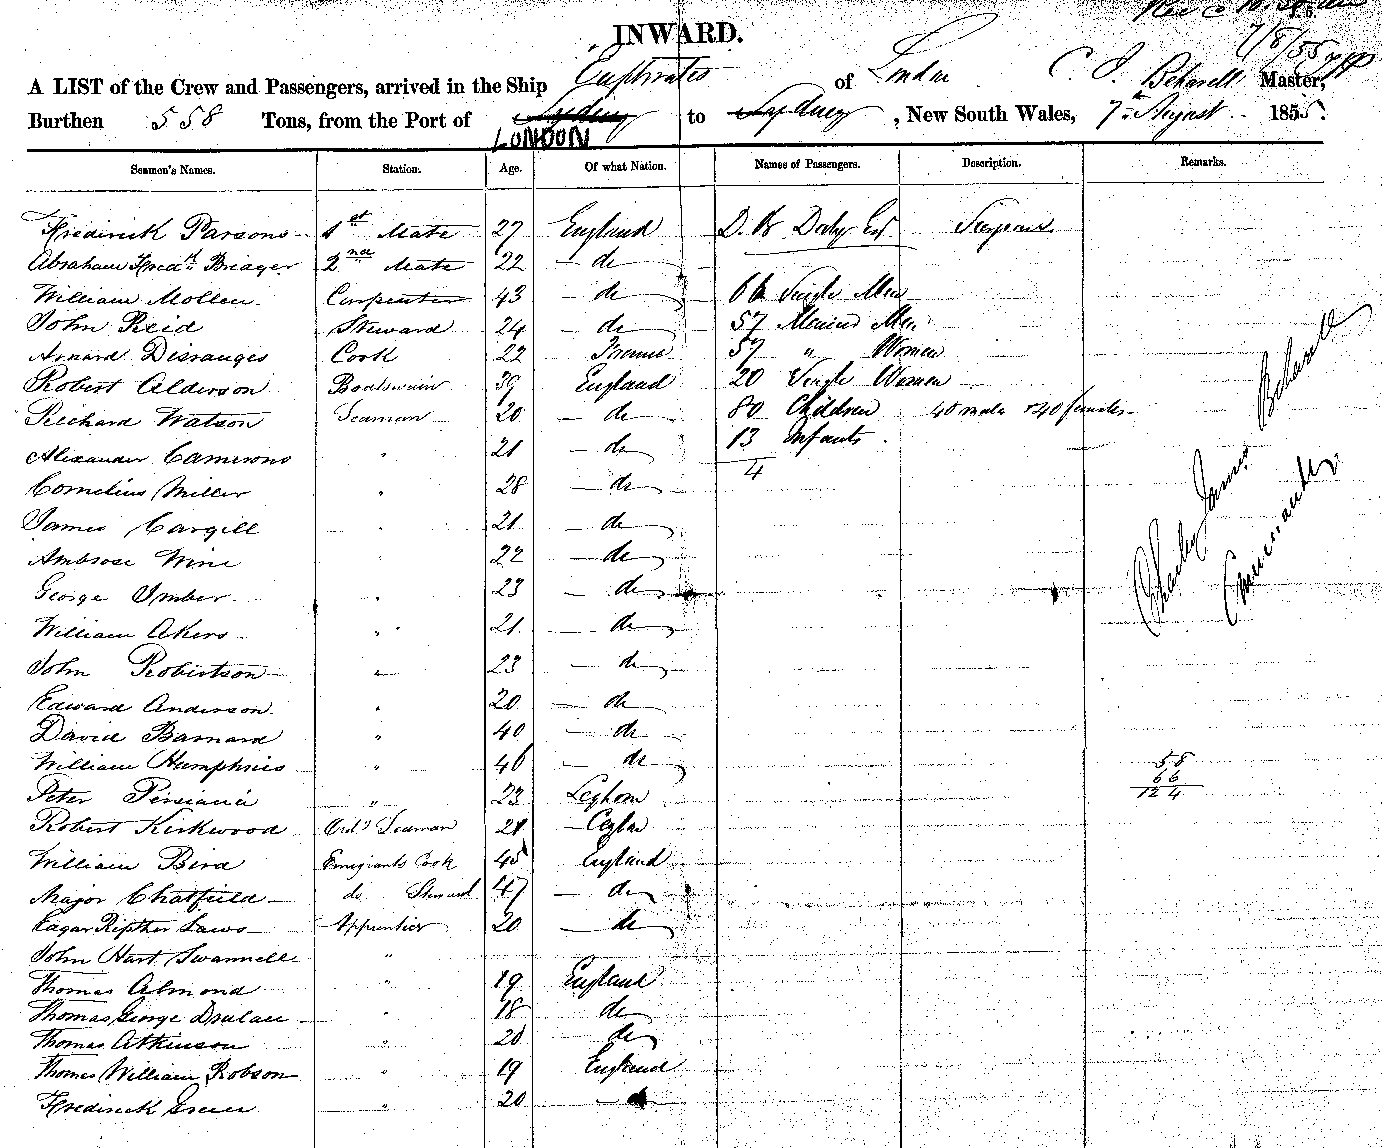 INWARD.
7/8/55
A LIST of the Crew and Passengers, arrived in the Ship Euphrates of London C. J. Beharell Master,
Burthen 558 Tons, from the Port of Sydney to Sydney, New South Wales, 7th August 1855.
LONDON
Seamen's Names. Station. Age. Of what Nation. Names of Passengers. Description. Remarks.
Frederick Parsons 1st Mate 27 England D. W Surgeon
Abraham Fredk Breager 2nd Mate 22 do
William Mollen Carpenter 43 do 66 Single Men
John Reid Steward 24 do 57 Married Men
Arnard Desranges Cook 22 France 57 " Women
Robert Alderson Boatswain 39 England 20 Single Women
Richard Watson Seaman 20 do 80 Children 40 male & 40 females
Alexander Camerons " 21 do 13 Infants
4
Cornelius Miller " 28 do
James Cargill " 21 do
Ambrose Wine " 22 do
George Imber " 23 do
William Akers " 21 do
John Robertson " 23 do
Edward Anderson " 20 do
David Barnard " 40 do
William Humphries " 46 do
Peter Persiana " 23 Leghorn
Robert Kirkwood Ord Seaman 21 Ceylon
William Bird Emigrants Cook 45 England
Major Chatfield do Steward 47 do
Eagar Ripther Laws Apprentice 20 do
John Hart Swannell "
Thomas Almond " 19 England
Thomas George " 18 do
Thomas Atkinson " 20 do
Thomas William Robson " 19 England
Frederick Green " 20
Charles James Beharell
Commander
58
66
124